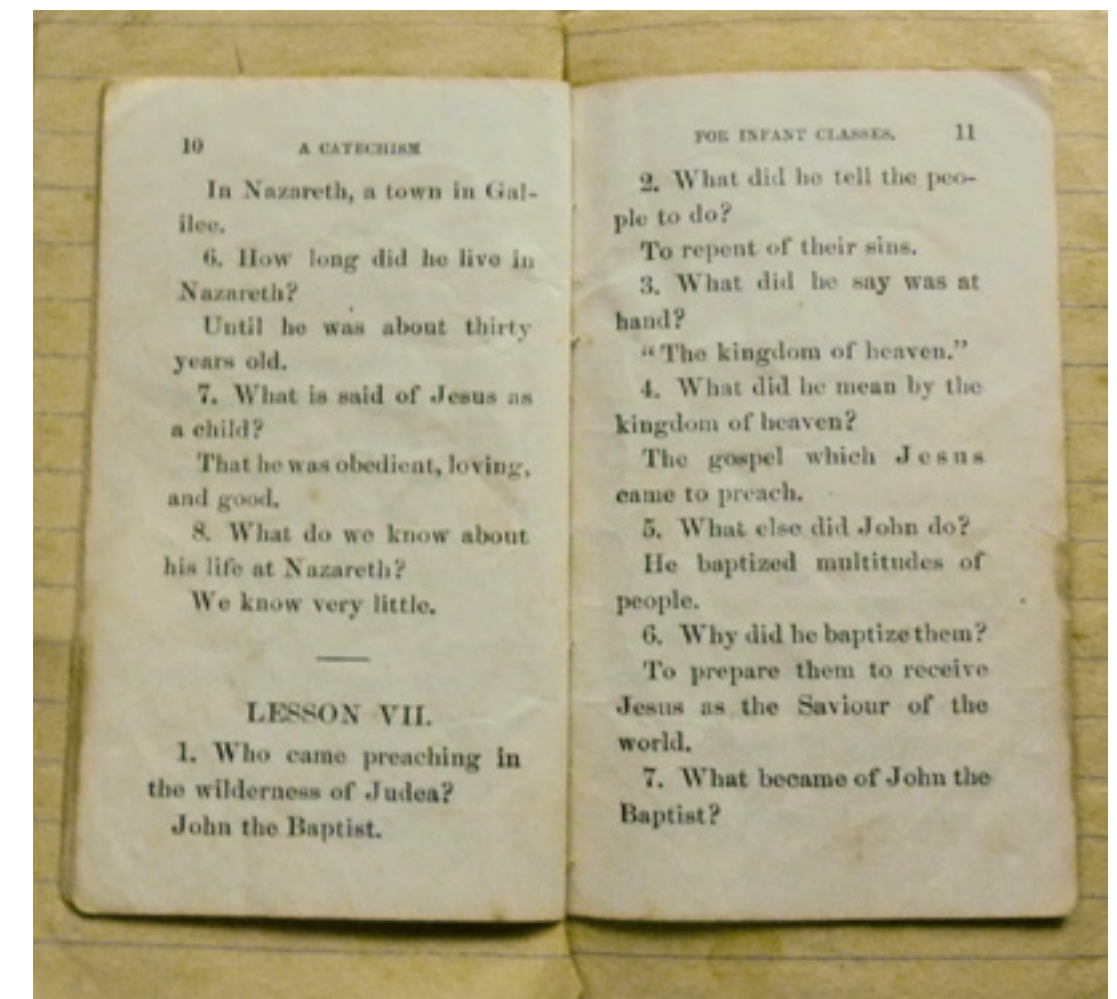 10 A CATECHISM
In Nazareth, a town in Gal-
ilee.
6. How long did he live in
Nazareth?
Until he was about thirty
years old.
7. What is said of Jesus as
a child?
That he was obedient, loving,
and good.
8. What do we know about
his life at Nazareth?
We know very little.
LESSON VII.
1. Who came preaching in
the wilderness of Judea?
John the Baptist.
FOR INFANT CLASSES. 11
2. What did he tell the peo-
ple to do?
To repent of their sins.
3. What did he say was at
hand?
“The kingdom of heaven.”
4. What did he mean by the
kingdom of heaven?
The gospel which Jesus
came to preach.
5. What else did John do?
He baptized multitudes of
people.
6. Why did he baptize them?
To prepare them to receive
Jesus as the Saviour of the
world.
7. What became of John the
Baptist?